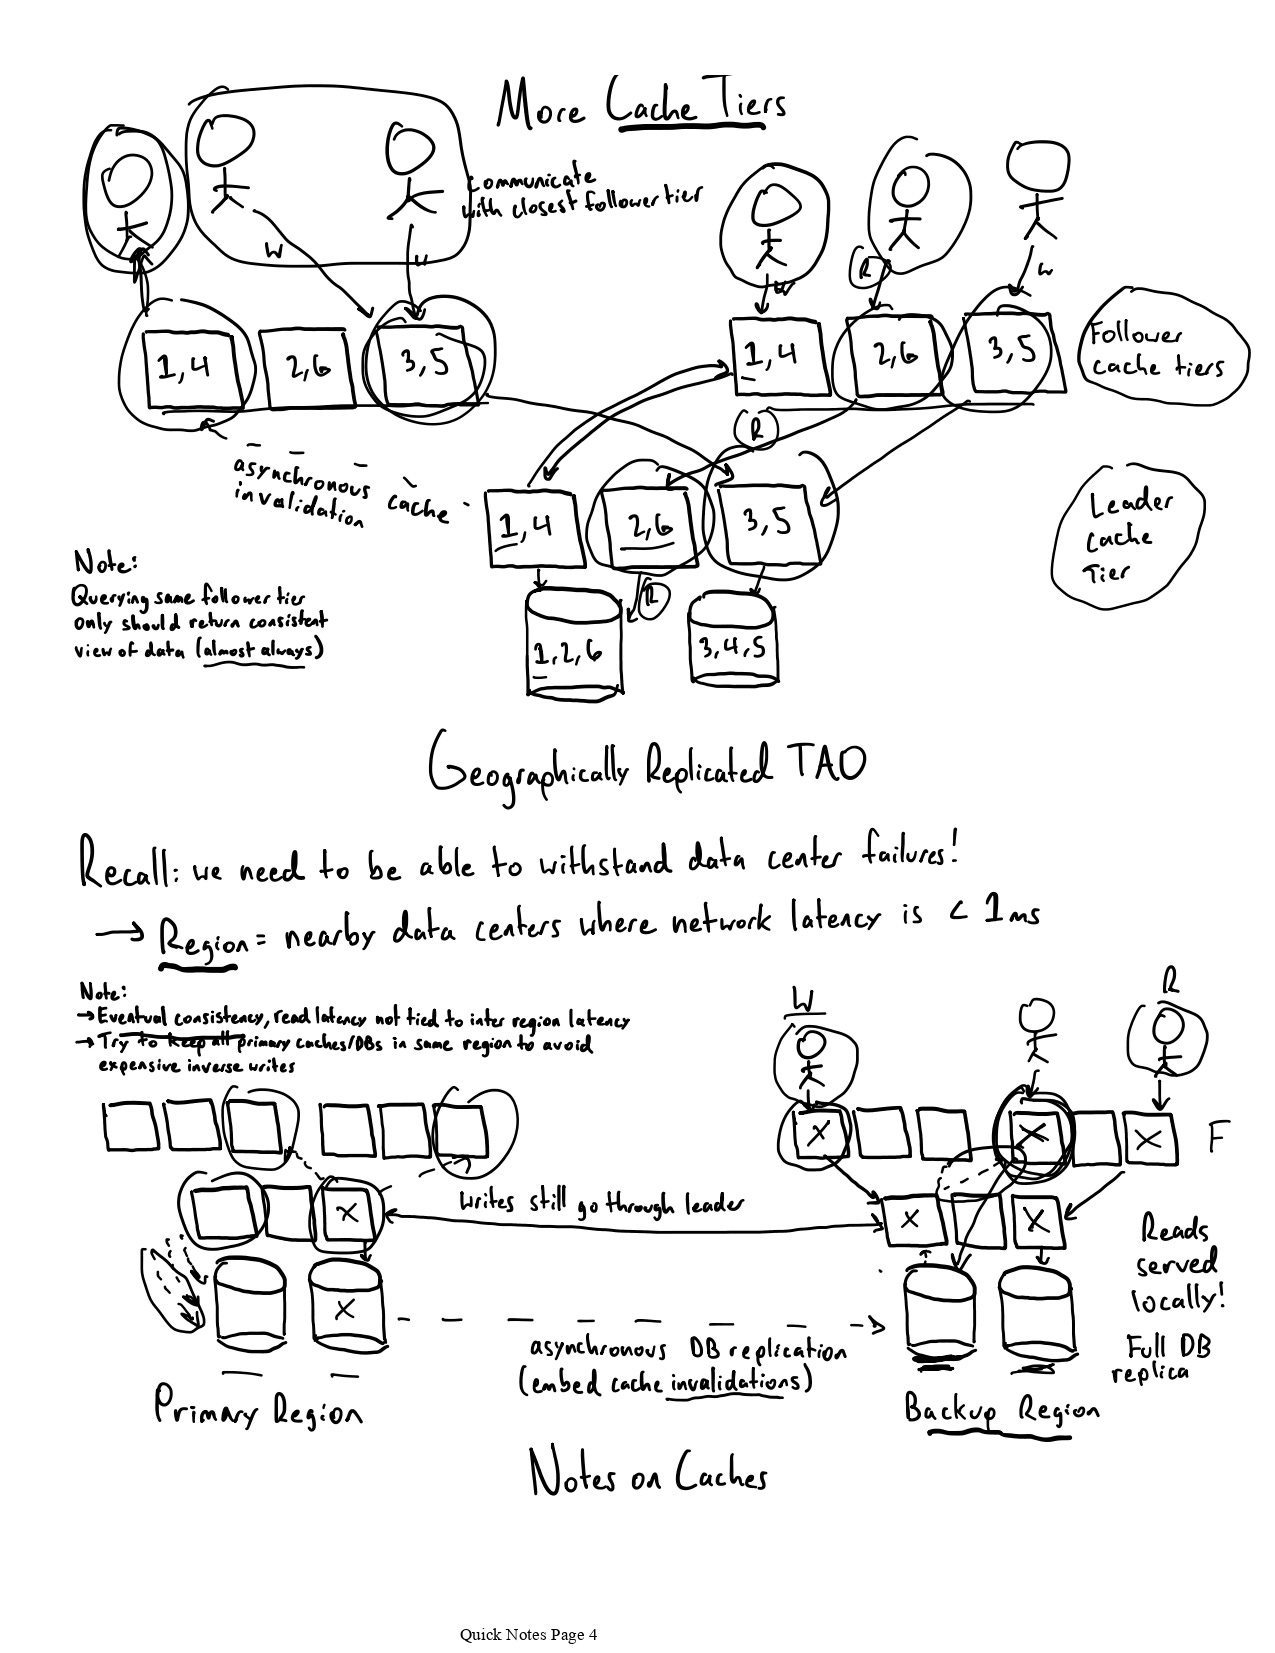 More Cache Tiers
communicate
with closest follower tier
W
W
W
R
W
1,4
2,6
3,5
1,4
2,6
3,5
Follower
cache tiers
R
asynchronous cache
invalidation
1,4
2,6
3,5
Leader
Cache
Tier
R
1,2,6
3,4,5
Note:
Querying same follower tier
only should return consistent
view of data (almost always)
Geographically Replicated TAO
Recall: we need to be able to withstand data center failures!
→ Region = nearby data centers where network latency is < 1ms
Note:
→ Eventual consistency, read latency not tied to inter region latency
→ Try to keep all primary caches/DBs in same region to avoid
expensive inverse writes
W
R
X
X
X
F
X
writes still go through leader
X
X
X
Reads
served
locally!
asynchronous DB replication
(embed cache invalidations)
Full DB
replica
Primary Region
Backup Region
Notes on Caches
Quick Notes Page 4